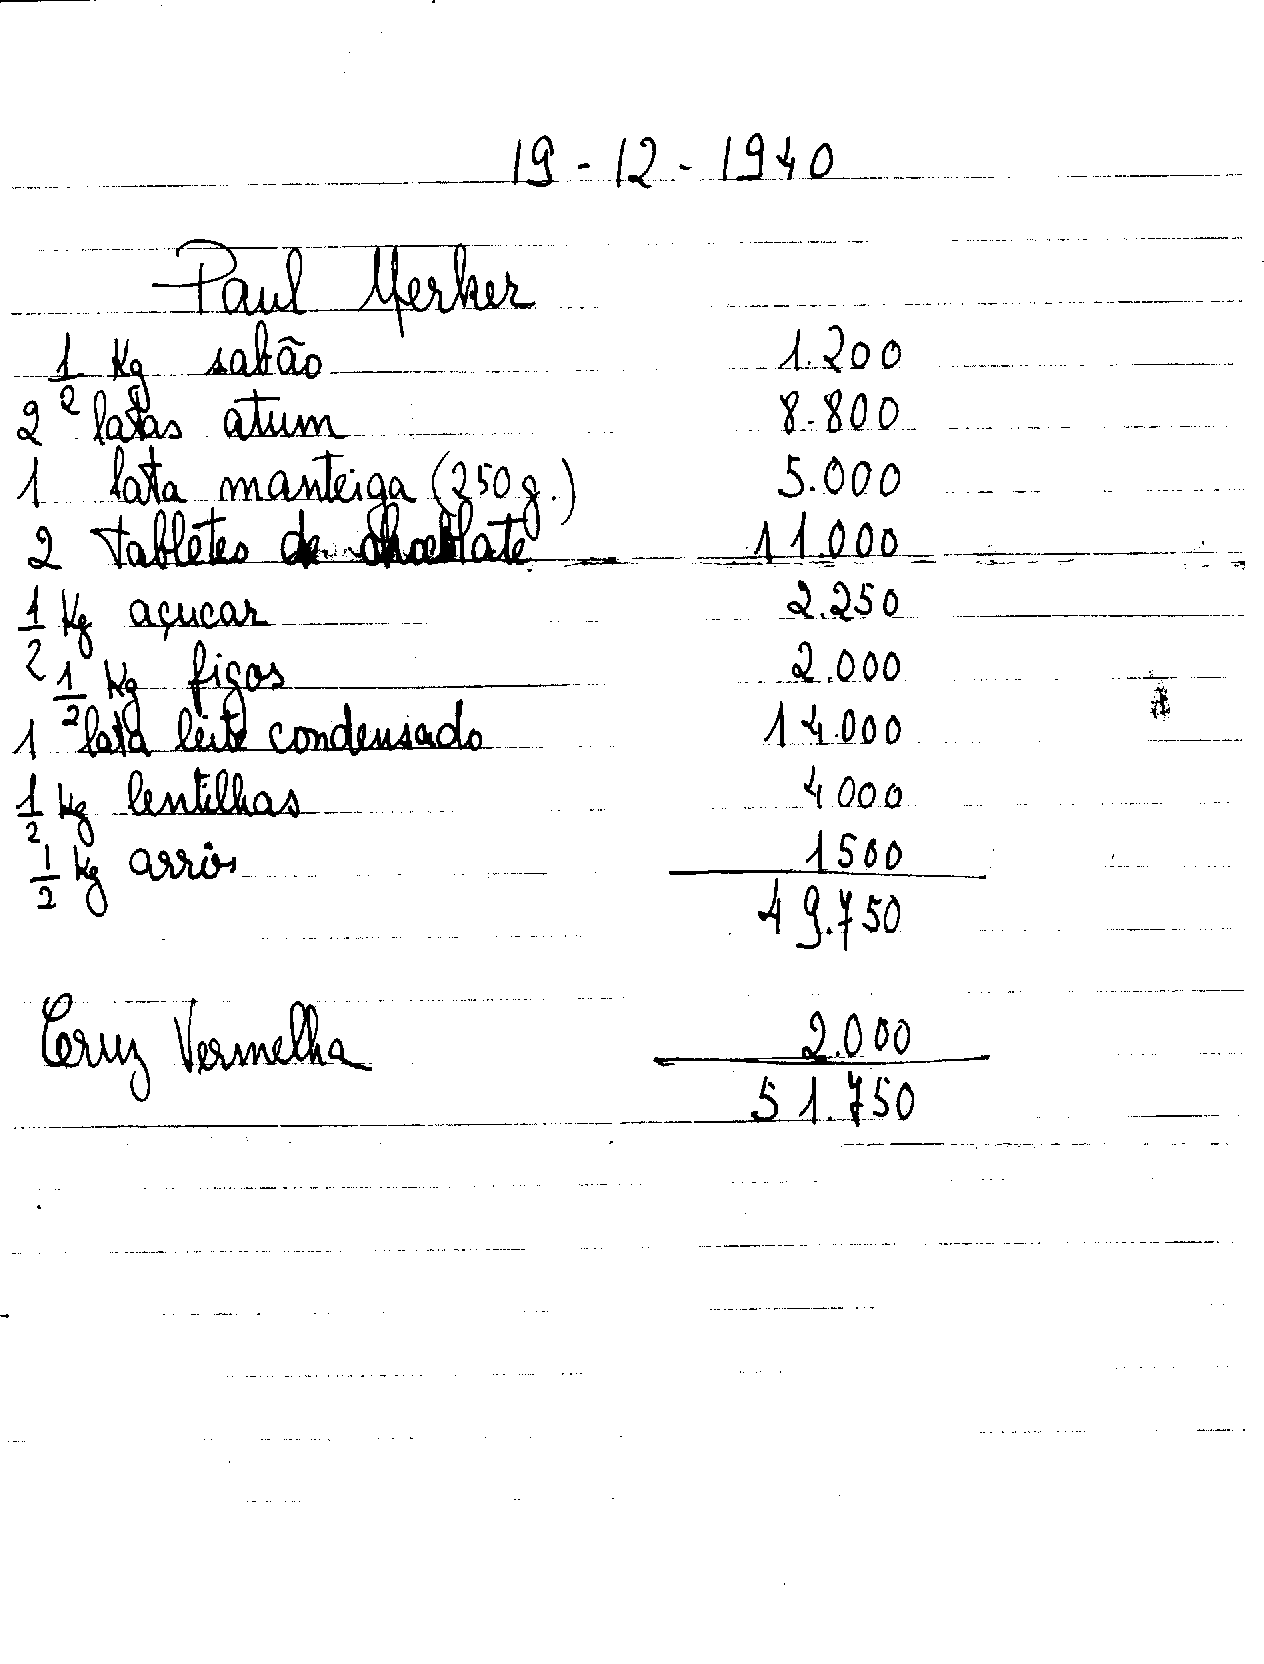 19-12-1940
Paul Merker
1/2 Kg sabão 1.200
2 latas atum 8.800
1 lata manteiga (250 g.) 5.000
2 tabletes de chocolate 11.000
1/2 Kg açucar 2.250
1/2 Kg figos 2.000
1 lata leite condensado 14.000
1/2 Kg lentilhas 4000
1/2 Kg arrôs 1500
49.750
Cruz Vermelha 2.000
51.750